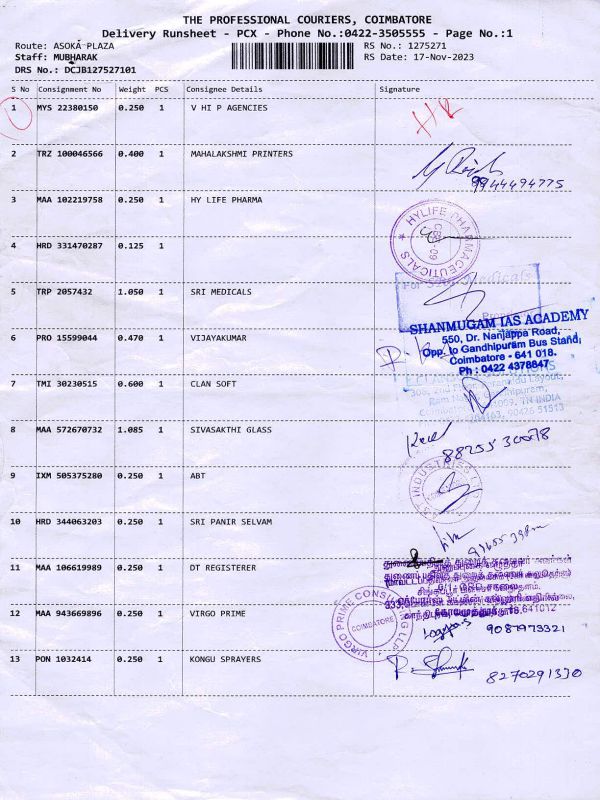 THE PROFESSIONAL COURIERS, COIMBATORE
Delivery Runsheet - PCX - Phone No.:0422-3505555 - Page No.:1
Route: ASOKA PLAZA RS No.: 1275271
Staff: MUBHARAK RS Date: 17-Nov-2023
DRS No.: DCJB127527101
S No Consignment No Weight PCS Consignee Details Signature
1 MYS 22380150 0.250 1 V HI P AGENCIES
2 TRZ 100046566 0.400 1 MAHALAKSHMI PRINTERS
9944494775
3 MAA 102219758 0.250 1 HY LIFE PHARMA
HYLIFE PHARMACEUTICALS
CBE-09
4 HRD 331470287 0.125 1
For Sri Medicals
5 TRP 2057432 1.050 1 SRI MEDICALS
SHANMUGAM IAS ACADEMY
550, Dr. Nanjappa Road,
Opp. to Gandhipuram Bus Stand,
Coimbatore - 641 018.
Ph : 0422 4378847
6 PRO 15599044 0.470 1 VIJAYAKUMAR
7 TMI 30230515 0.600 1 CLAN SOFT
8 MAA 572670732 1.085 1 SIVASAKTHI GLASS
88255 30078
9 IXM 505375280 0.250 1 ABT
10 HRD 344063203 0.250 1 SRI PANIR SELVAM
11 MAA 106619989 0.250 1 DT REGISTERER
12 MAA 943669896 0.250 1 VIRGO PRIME
VIRGO PRIME CONSULTING LLP
COIMBATORE
9087973321
13 PON 1032414 0.250 1 KONGU SPRAYERS
8270291330